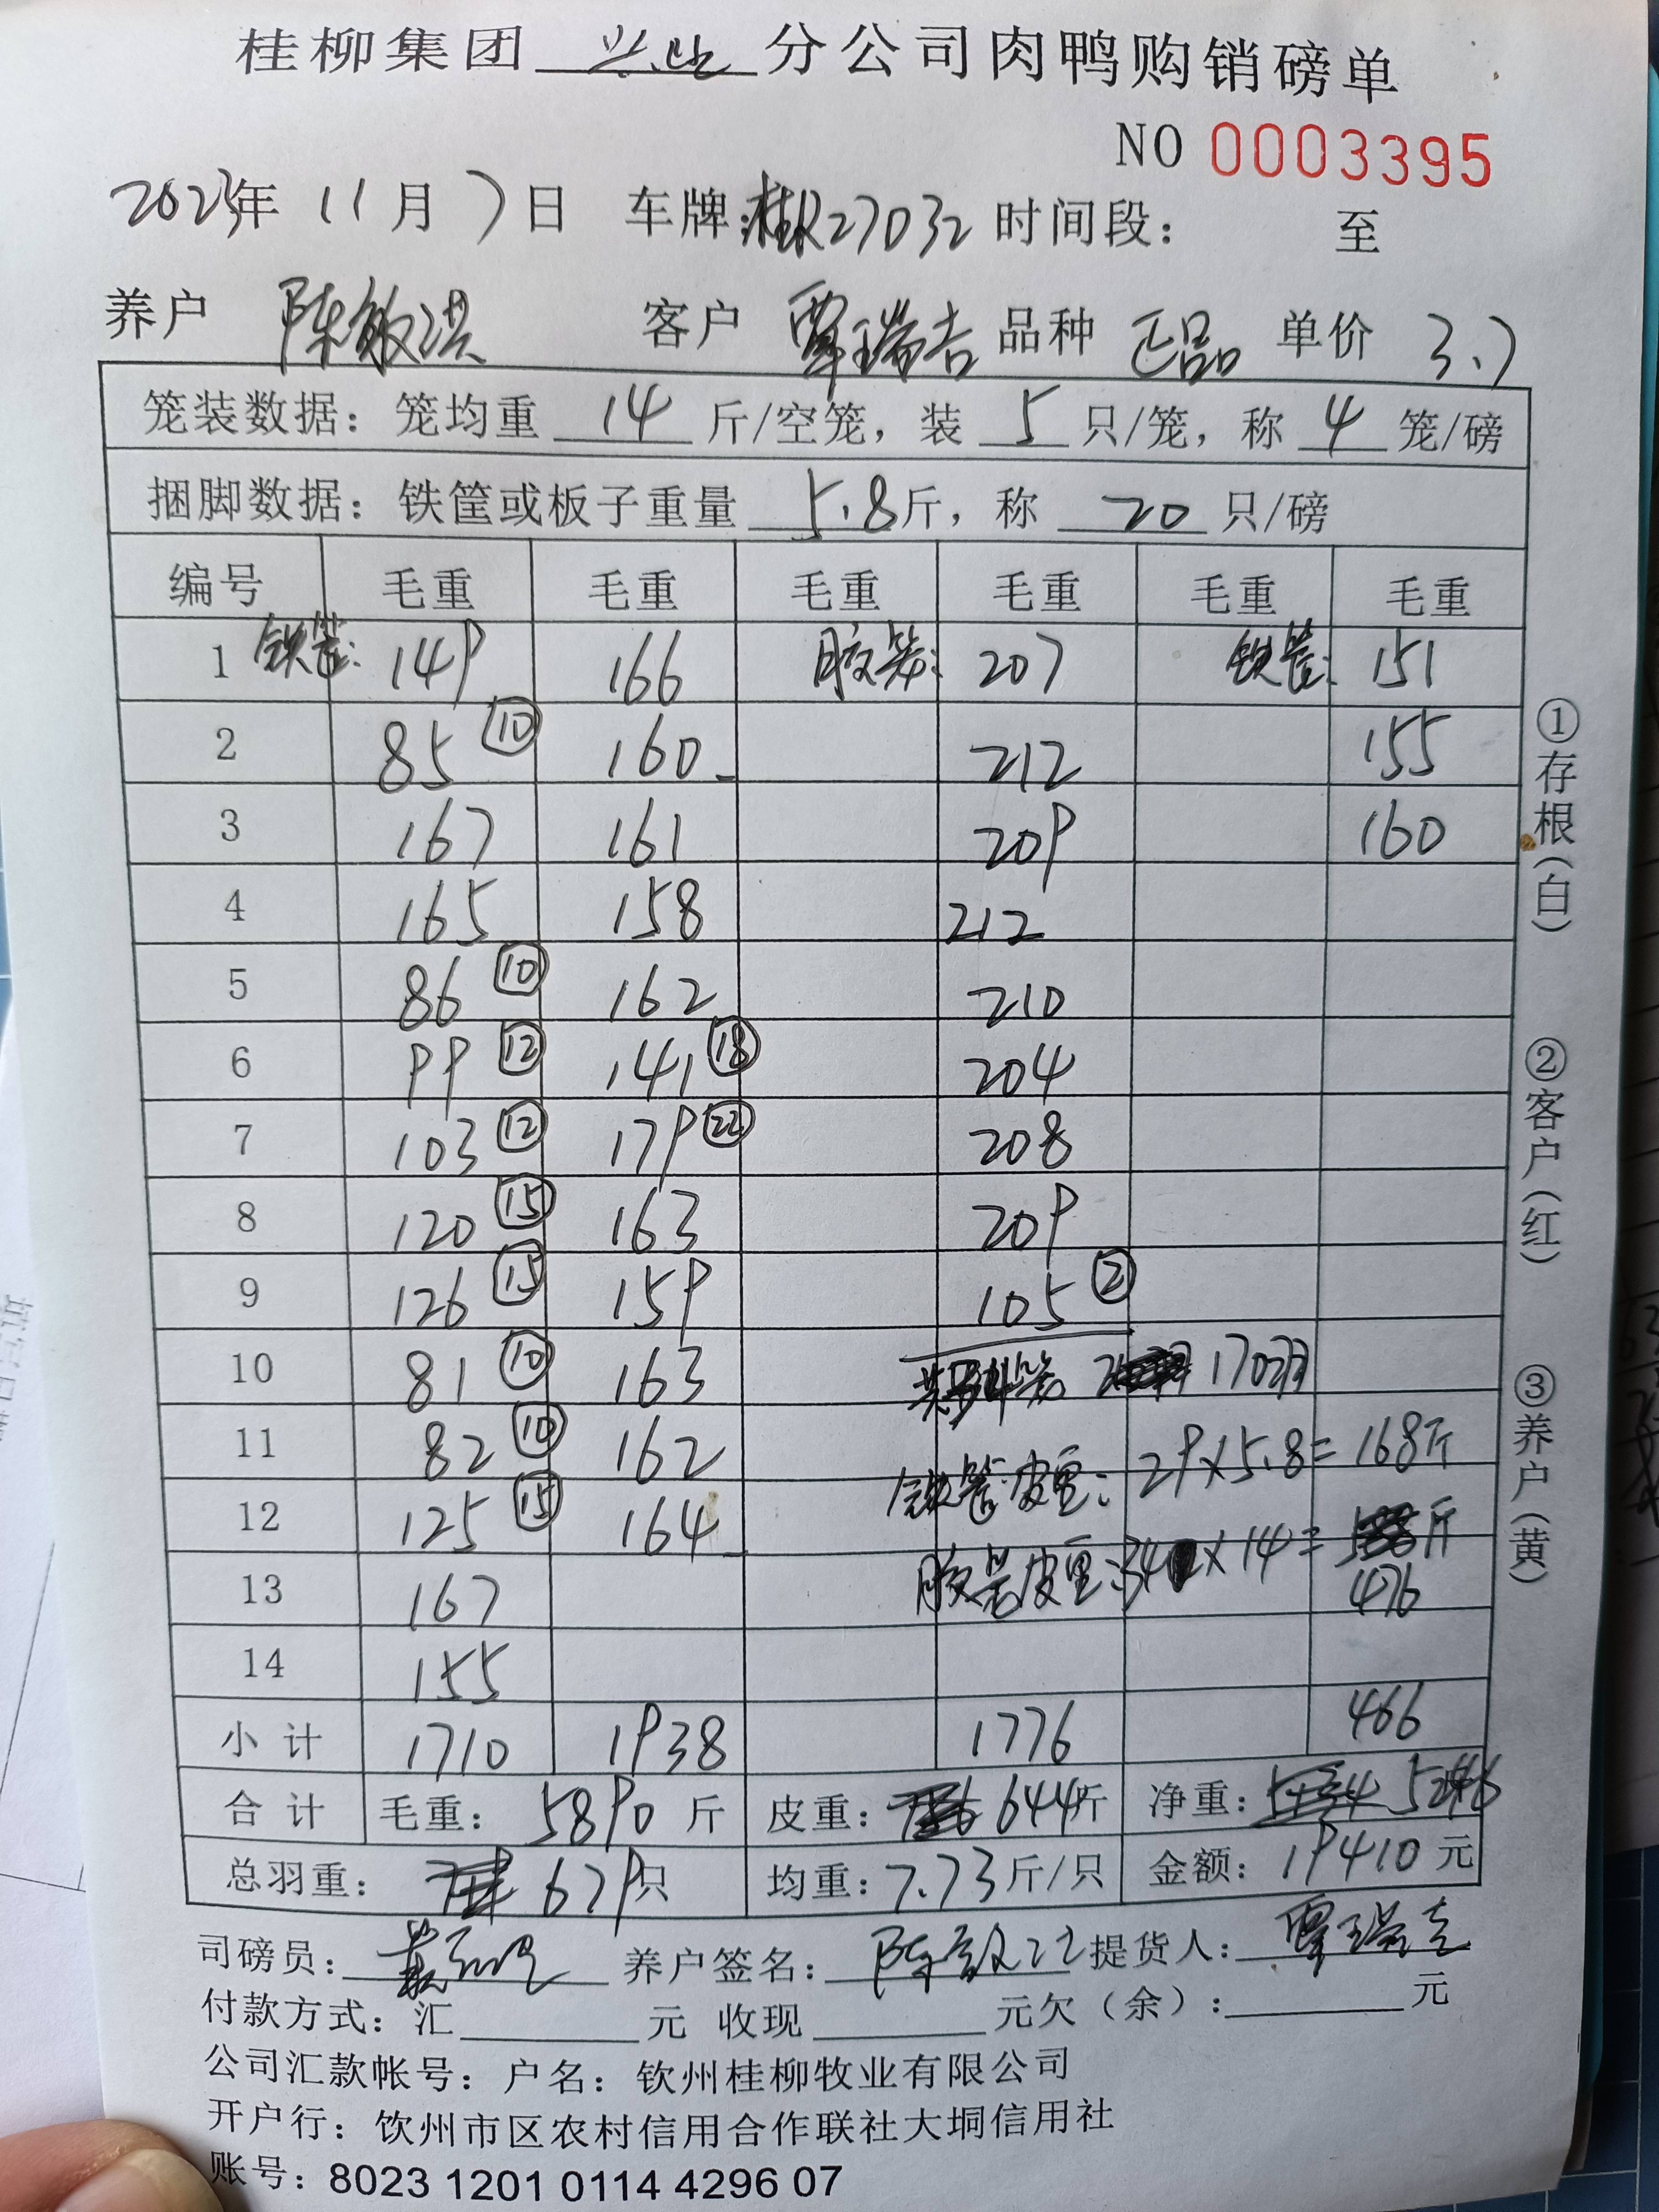 桂柳集团 兴业 分公司肉鸭购销磅单
NO 0003395
2023年 11月 7日 车牌:桂R27032 时间段: 至
养户 陈敏洪 客户 覃瑞吉 品种 正品 单价 3.7
笼装数据: 笼均重 14 斤/空笼, 装 5 只/笼, 称 4 笼/磅
捆脚数据: 铁筐或板子重量 5.8 斤, 称 20 只/磅
编号 毛重 毛重 毛重 毛重 毛重 毛重
1 铁筐: 149 166 胶笼: 207 铁筐: 151
2 85 ⑩ 160 212 155
3 167 161 209 160
4 165 158 212
5 86 ⑩ 162 210
6 99 ⑫ 141 ⑱ 204
7 103 ⑫ 179 ㉒ 208
8 120 ⑮ 163 209
9 126 ⑮ 159 105 ②
10 81 ⑩ 163 170羽
11 82 ⑩ 162 铁筐皮重: 29×5.8=168斤
12 125 ⑮ 164 胶笼皮重: 34×14= 斤
13 167 476
14 155
小计 1710 1938 1776 466
合计 毛重: 5890 斤 皮重: 644斤 净重: 5246
总羽重: 679只 均重: 7.73斤/只 金额: 19410元
司磅员: 养户签名: 提货人: 覃瑞吉
付款方式: 汇 元 收现 元欠(余): 元
公司汇款帐号: 户名: 钦州桂柳牧业有限公司
开户行: 钦州市区农村信用合作联社大垌信用社
账号: 8023 1201 0114 4296 07
①存根(白)
②客户(红)
③养户(黄)